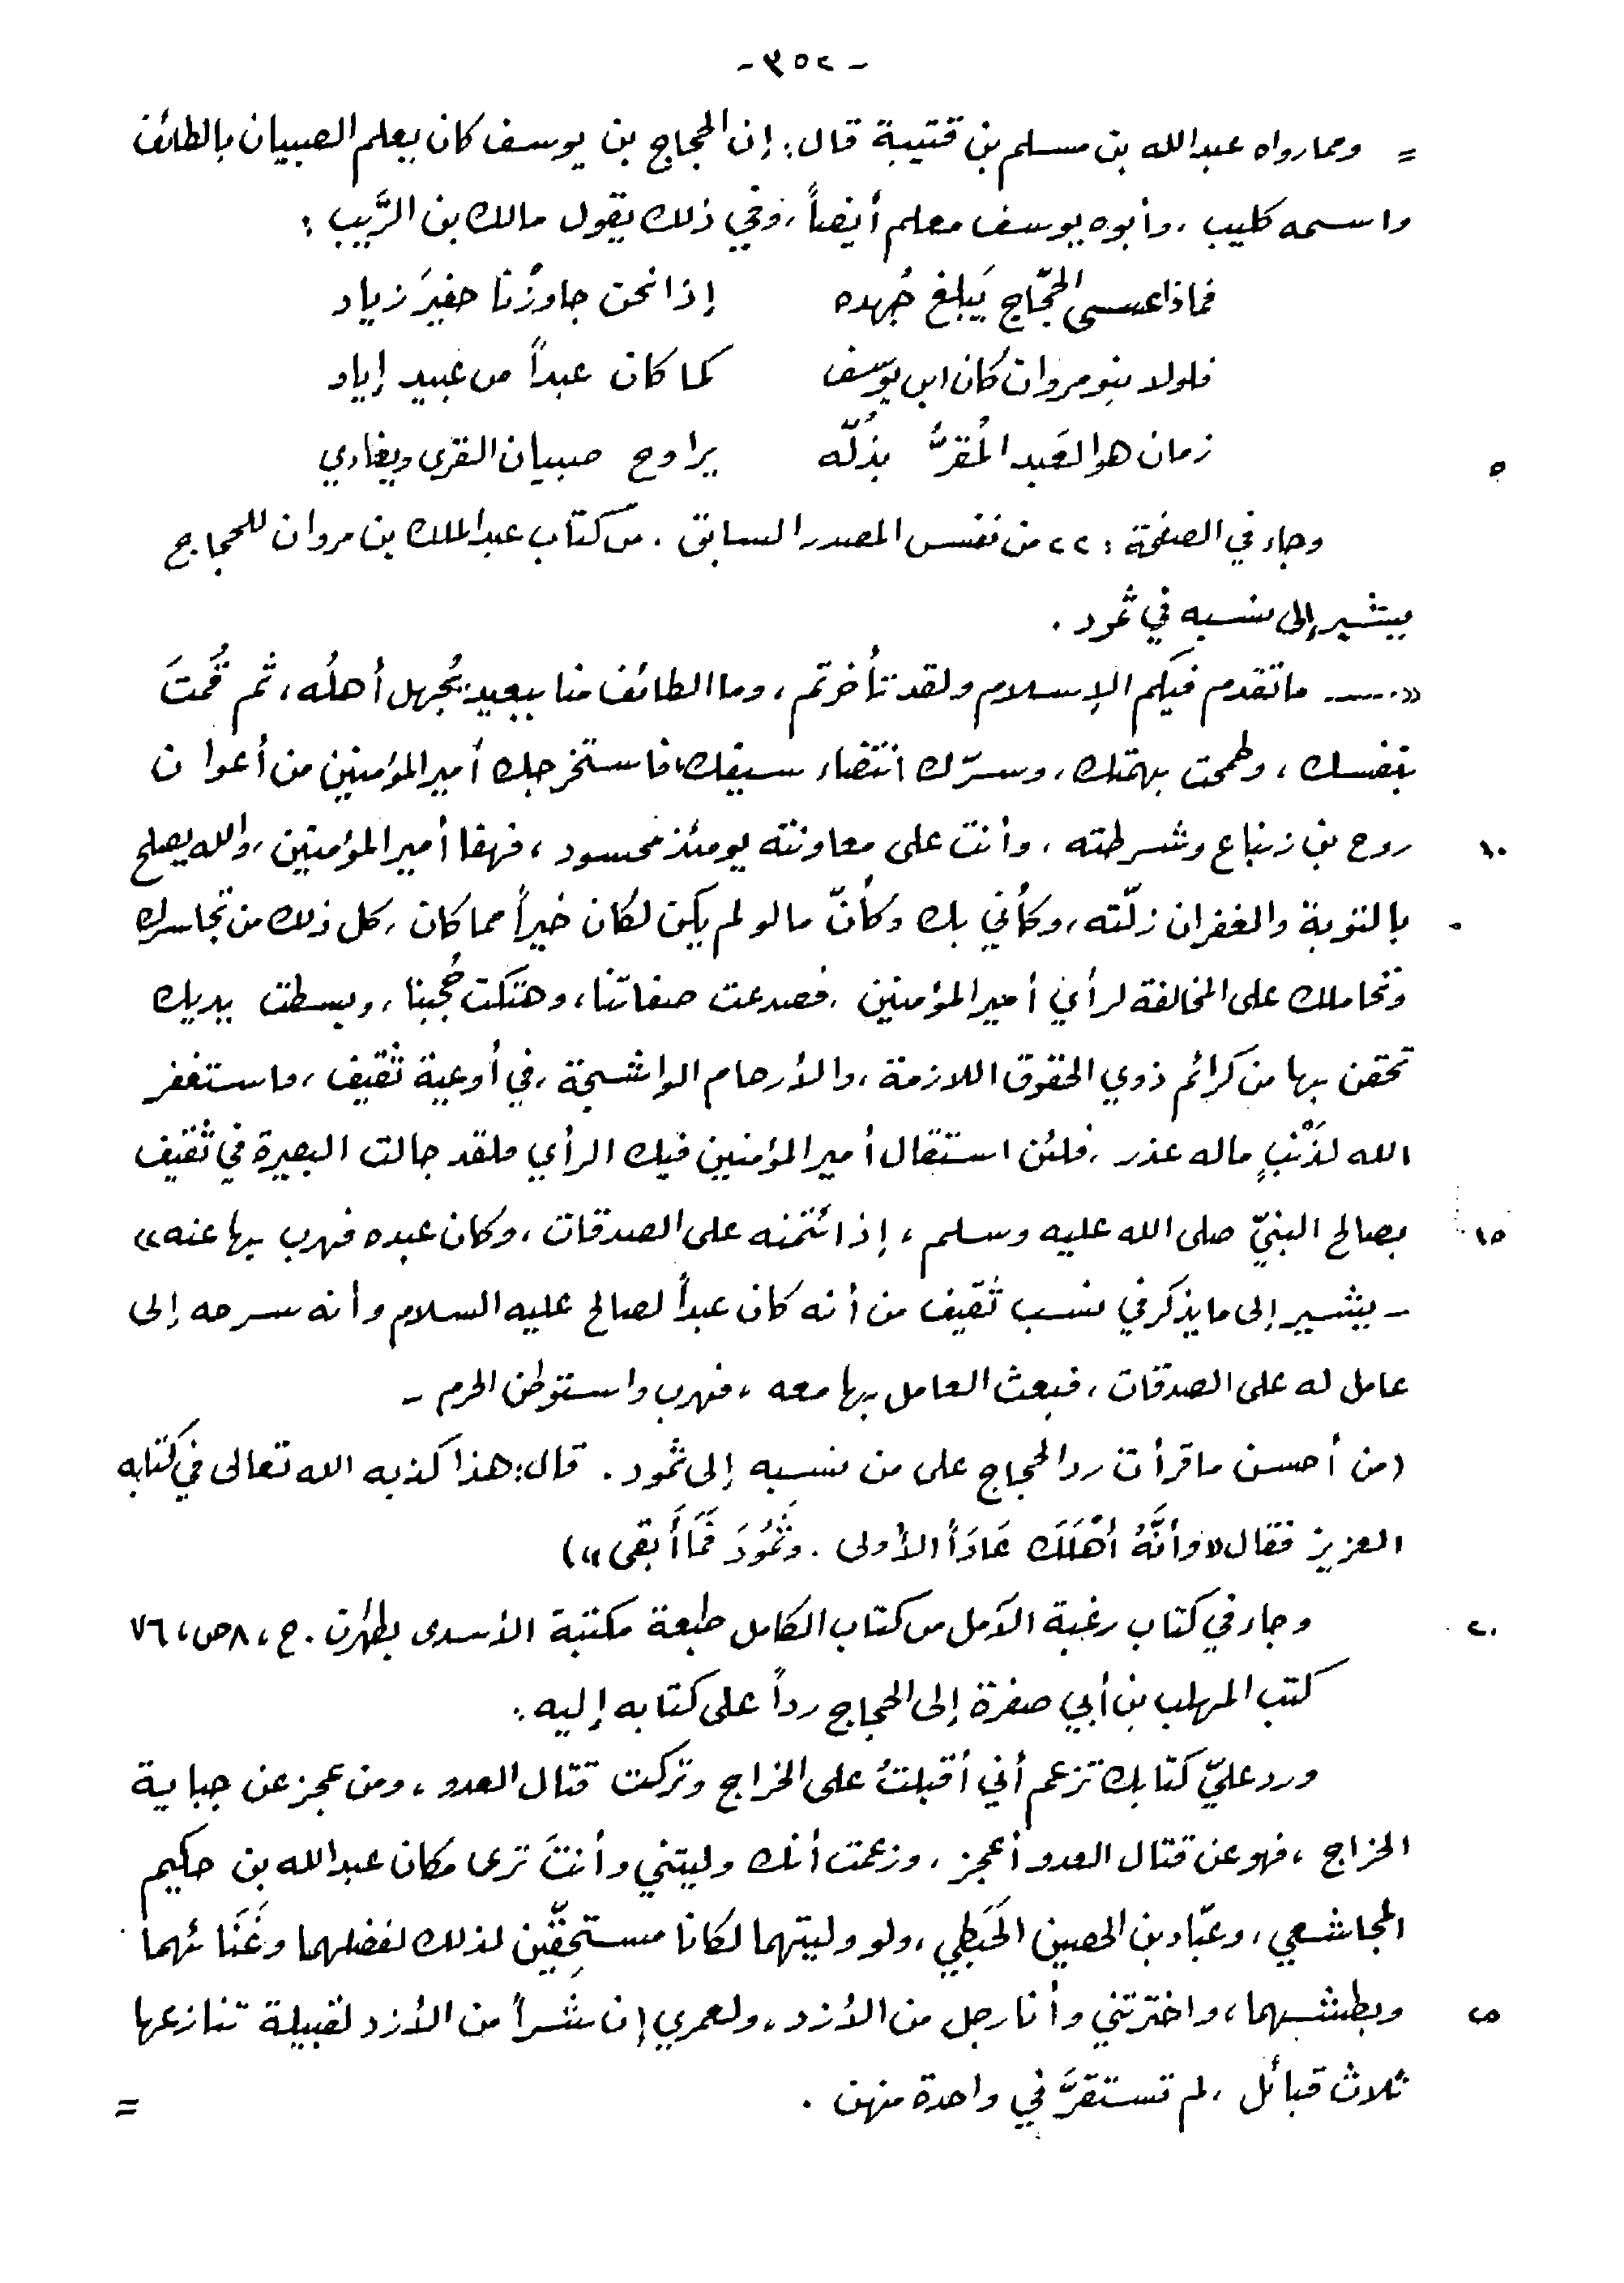 - ٣٥٢ -
= ومما رواه عبد الله بن مسلم بن قتيبة قال: إن الحجاج بن يوسف كان يعلم الصبيان بالطائف
واسمه كليب، وأبوه يوسف معلم أيضاً، وفي ذلك يقول مالك بن الرَّيب:
فماذا عسى الحجّاج يَبلغ جُهده إذا نحن جاوزْنا حفيرَ زياد
فلولا بنو مروان كان ابن يوسف كما كان عبداً من عبيد إياد
٥ زمان هو العَبد المُقرُّ بذُلّه يراوح صبيان القرى ويغادي
وجاء في الصفحة: ٢٢ من نفس المصدر السابق. من كتاب عبد الملك بن مروان للحجاج
يشير إلى نسبه في ثمود.
«..... ما تقدم فيكم الإسلام ولقد تأخرتم، وما الطائف منا ببعيد يُجهل أهلُه، ثم قُمتَ
بنفسك، وطمحت بهمتك، وسرّك انتضاء سيفك، فاستخرجك أمير المؤمنين من أعوان
١٠ روح بن زنباع وشرطته، وأنت على معاونته يومئذ محسود، فهفا أمير المؤمنين، والله يصلح
بالتوبة والغفران زلّته، وكأني بك وكأنّ ما لو لم يكن لكان خيراً مما كان، كل ذلك من تجاسرك
وتحاملك على المخالفة لرأي أمير المؤمنين، فصدعت صفاتنا، وهتكت حُجبنا، وبسطت يديك
تحقن بها من كرائم ذوي الحقوق اللازمة، والأرحام الواشجة، في أوعية ثقيف، فاستغفر
الله لذَنْبٍ ماله عذر، فلئن استقال أمير المؤمنين فيك الرأي فلقد جالت البصيرة في ثقيف
١٥ بصالح النبيّ صلى الله عليه وسلم، إذ ائتمنه على الصدقات، وكان عبده فهرب بها عنه»
- يشير إلى ما يذكر في نسب ثقيف من أنه كان عبداً لصالح عليه السلام وأنه سرحه إلى
عامل له على الصدقات، فبعث العامل بها معه، فهرب واستوطن الحرم -
(من أحسن ما قرأت رد الحجاج على من نسبه إلى ثمود. قال: هذا كذبه الله تعالى في كتابه
العزيز فقال «وأَنَّهُ أَهْلَكَ عَادَاً الأولى. وَثَمُودَ فَمَا أَبقى»)
٢٠ وجاء في كتاب رغبة الآمل من كتاب الكامل طبعة مكتبة الأسدى بطهرن. ج، ٨ ص، ٧٦
كتب المهلب بن أبي صفرة إلى الحجاج رداً على كتابه إليه:
ورد عليّ كتابك تزعم أني أقبلتُ على الخراج وتركت قتال العدو، ومن عجز عن جباية
الخراج، فهو عن قتال العدو أعجز، وزعمت أنك وليتني وأنتَ ترى مكان عبد الله بن حكيم
المجاشعي، وعبّاد بن الحصين الحَبَطِي، ولو وليتهما لكانا مستحِقَّين لذلك لفضلهما وغَنَائهما
٢٥ وبطشهما، واخترتني وأنا رجل من الأزد، ولعمري إن شراً من الأزد لقبيلة تنازعها
ثلاث قبائل، لم تستقرَّ في واحدة منهن. =